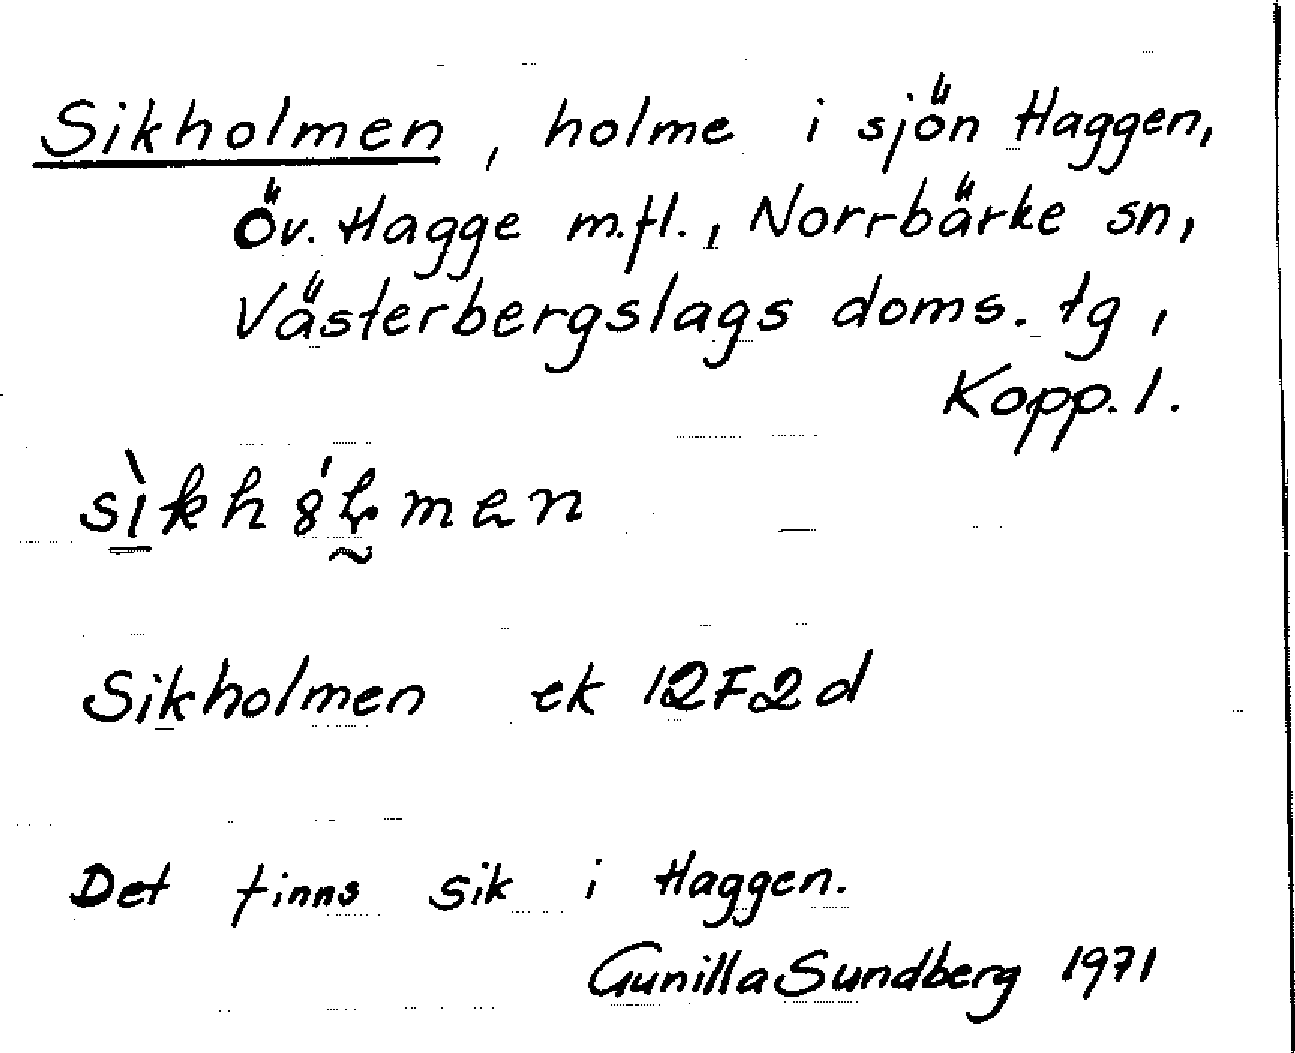 Sikholmen, holme i sjön Haggen,
Öv. Hagge m.fl., Norrbärke sn,
Västerbergslags doms. tg,
Kopp. l.
Sikholmen ek 12F2d
Det finns sik i Haggen.
Gunilla Sundberg 1971